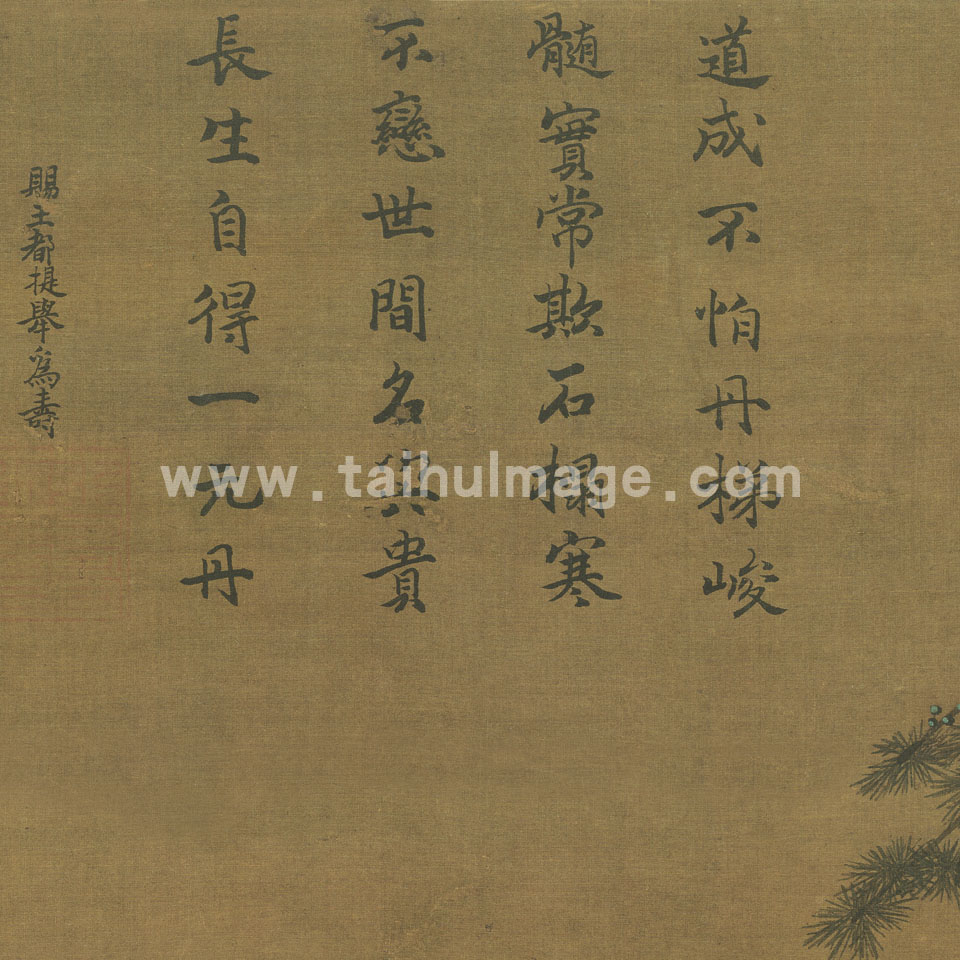 道成不怕丹梯峻
髓實常欺石榻寒
不戀世間名與貴
長生自得一元丹
賜王都提舉為壽
www.taihuImage.com